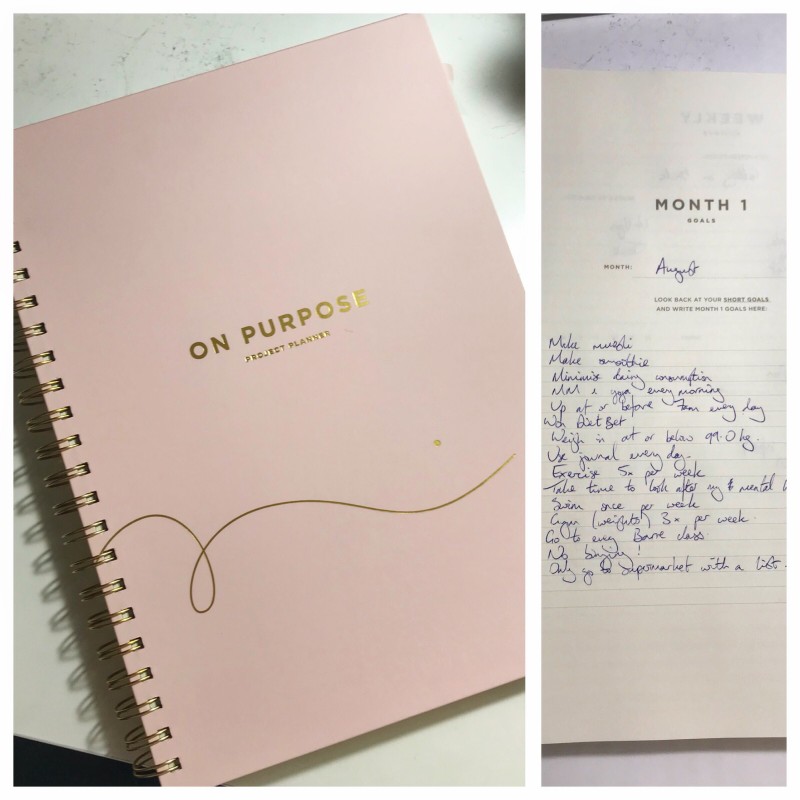 ON PURPOSE
PROJECT PLANNER
WEEKLY
MONTH 1
GOALS
MONTH: August
LOOK BACK AT YOUR SHORT GOALS
AND WRITE MONTH 1 GOALS HERE:
Make muesli
Make smoothie
Minimise dairy consumption
MM & yoga every morning
Up at or before 7am every day
Win DietBet
Weigh in at or below 99.0 kg.
Use journal every day.
Exercise 5x per week
Take time to look after my & mental
Swim once per week
Gym (weights) 3x per week.
Go to every Barre class.
No binging!
Only go to supermarket with a list.